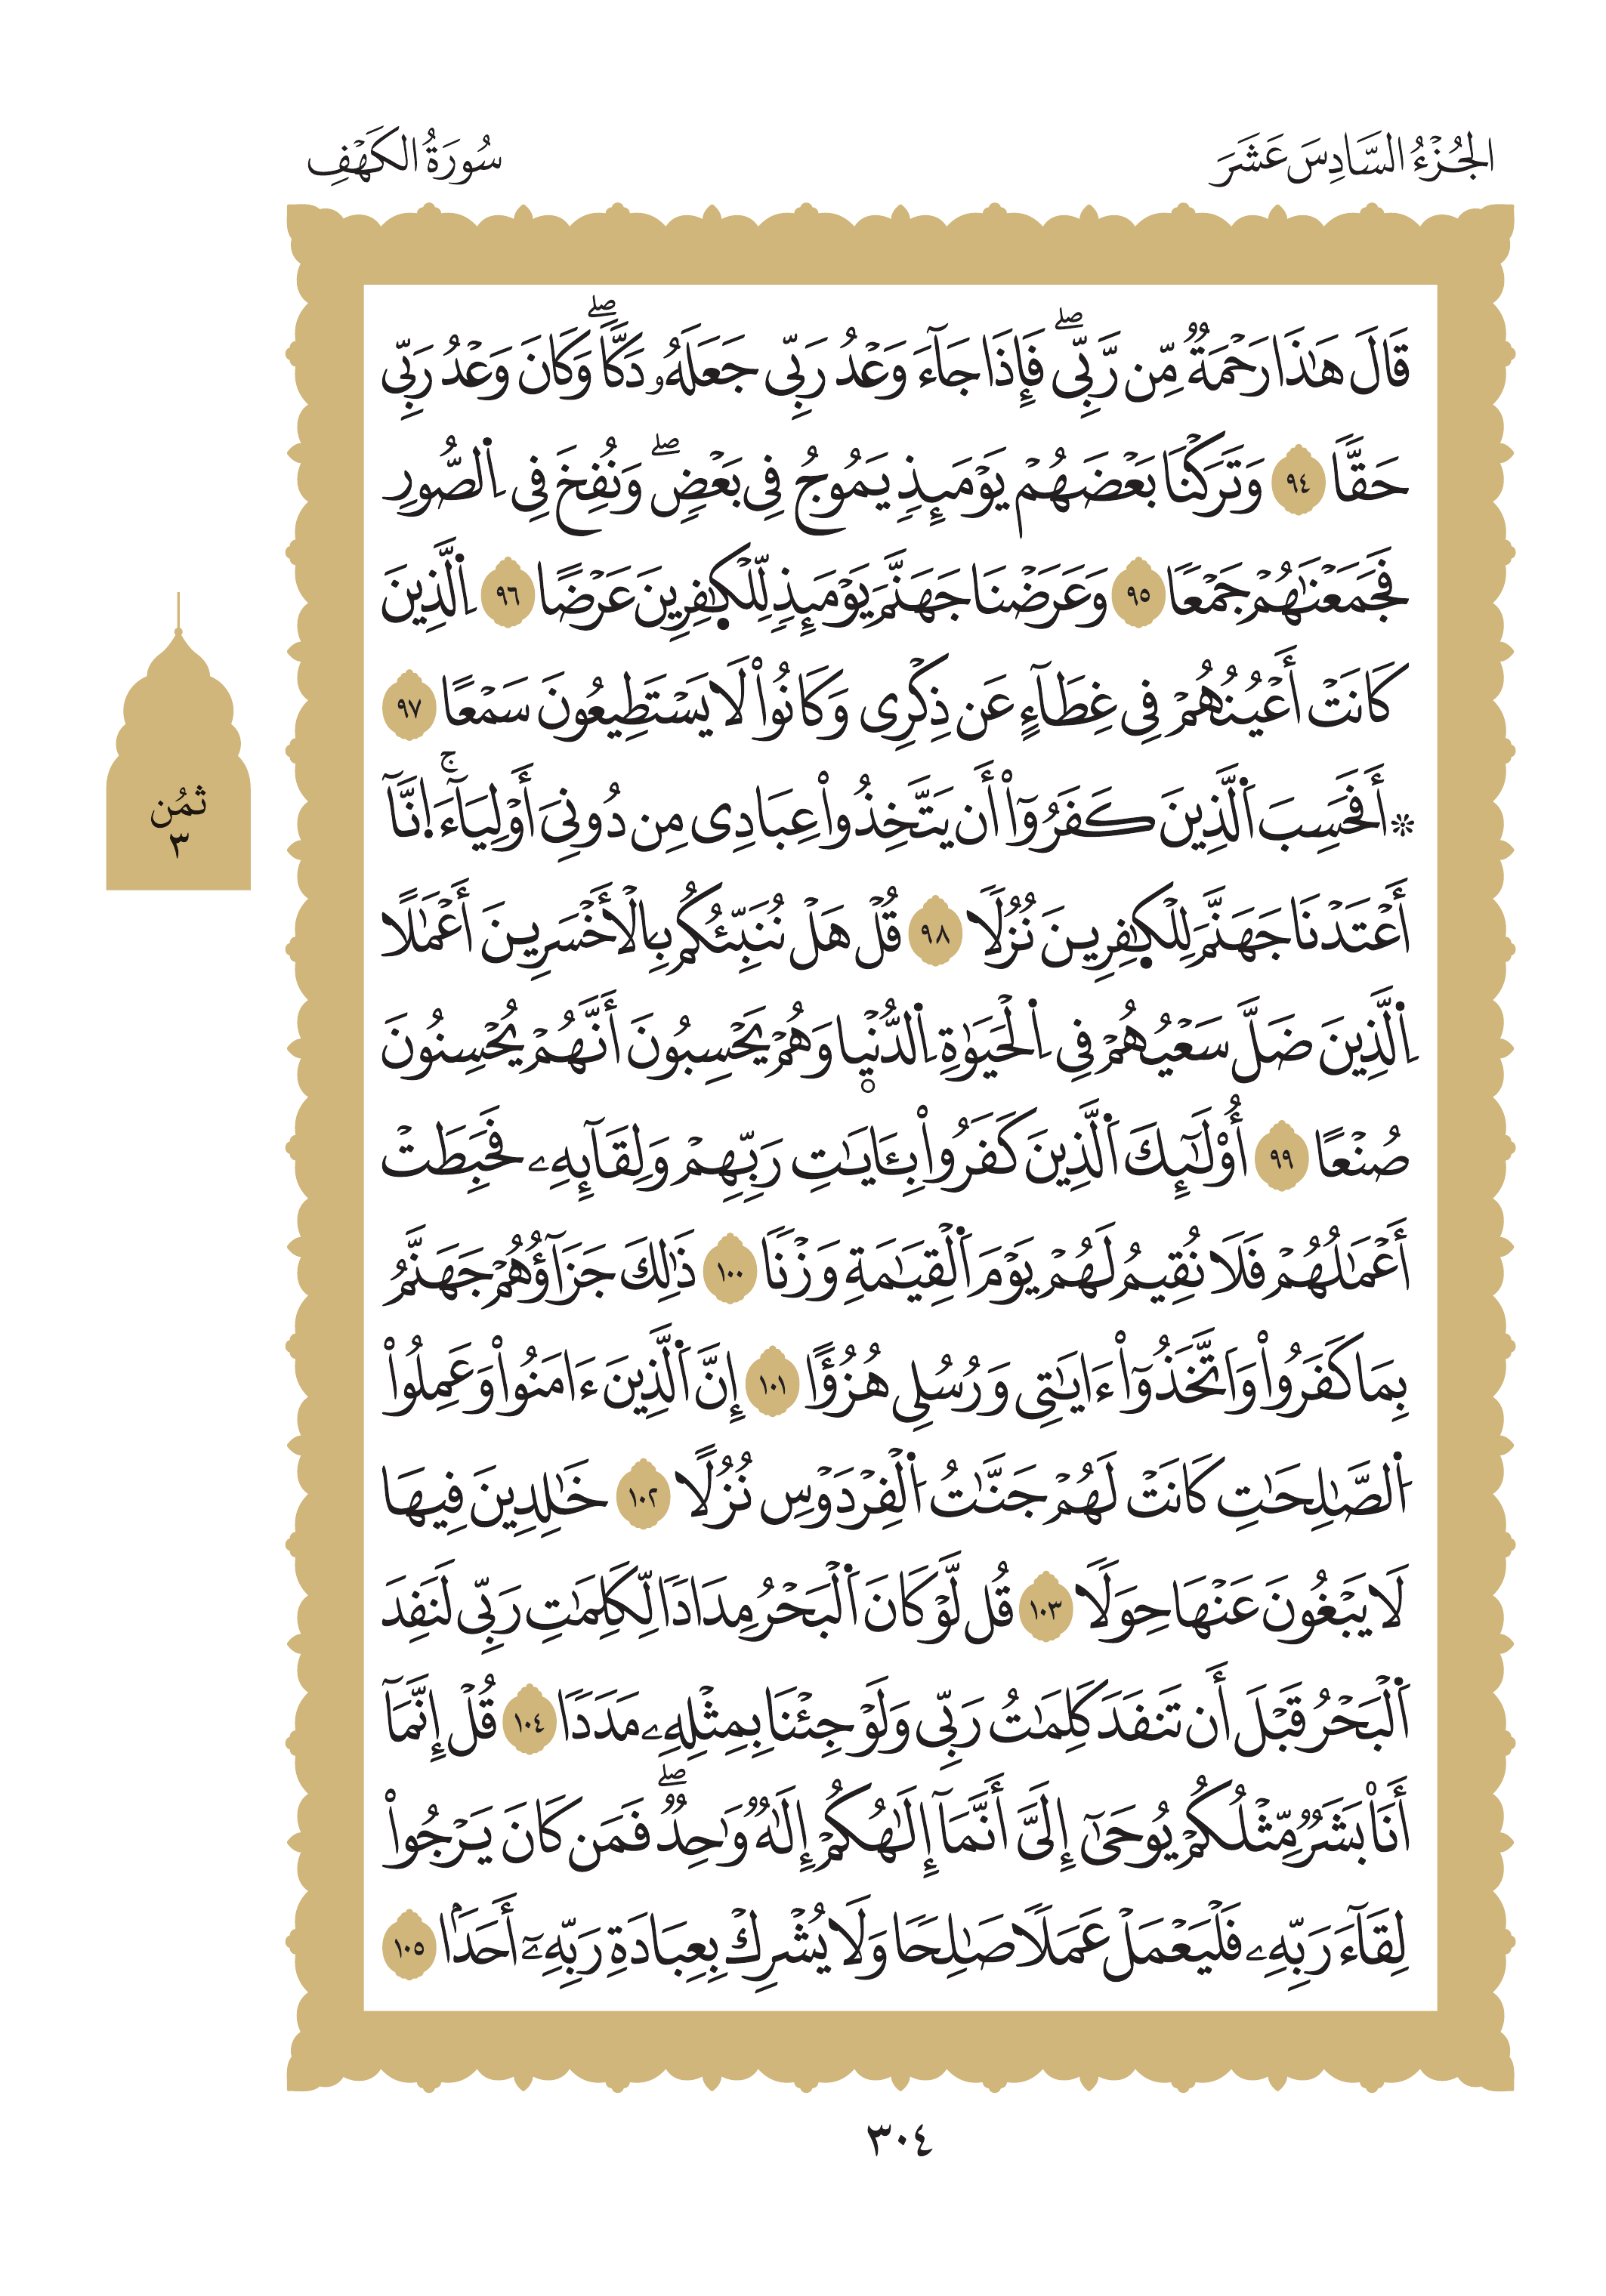 الجُزْءُ السَّادِسَ عَشَرَ
سُورَةُ الكَهْفِ
قَالَ هَٰذَا رَحْمَةٌ مِّن رَّبِّيۖ فَإِذَا جَآءَ وَعْدُ رَبِّي جَعَلَهُۥ دَكّٗاۖ وَكَانَ وَعْدُ رَبِّي
حَقّٗا ٩٤ وَتَرَكْنَا بَعْضَهُمْ يَوْمَئِذٖ يَمُوجُ فِي بَعْضٖۖ وَنُفِخَ فِي اِ۬لصُّورِ
فَجَمَعْنَٰهُمْ جَمْعٗا ٩٥ وَعَرَضْنَا جَهَنَّمَ يَوْمَئِذٖ لِّلْكٰ۪فِرِينَ عَرْضًا ٩٦ اِ۬لَّذِينَ
كَانَتْ أَعْيُنُهُمْ فِي غِطَآءٍ عَن ذِكْرِي وَكَانُواْ لَا يَسْتَطِيعُونَ سَمْعًا ٩٧
۞ أَفَحَسِبَ اَ۬لَّذِينَ كَفَرُوٓاْ أَن يَتَّخِذُواْ عِبَادِي مِن دُونِيَ أَوْلِيَآءَۚ اِ۪نَّآ
أَعْتَدْنَا جَهَنَّمَ لِلْكٰ۪فِرِينَ نُزُلٗا ٩٨ قُلْ هَلْ نُنَبِّئُكُم بِالْأَخْسَرِينَ أَعْمَٰلًا
اِ۬لَّذِينَ ضَلَّ سَعْيُهُمْ فِي اِ۬لْحَيَوٰةِ اِ۬لدُّنْي۪ا وَهُمْ يَحْسِبُونَ أَنَّهُمْ يُحْسِنُونَ
صُنْعًا ٩٩ أُوْلَٰٓئِكَ اَ۬لَّذِينَ كَفَرُواْ بِـَٔايَٰتِ رَبِّهِمْ وَلِقَآئِهِۦ فَحَبِطَتْ
أَعْمَٰلُهُمْ فَلَا نُقِيمُ لَهُمْ يَوْمَ اَ۬لْقِيَٰمَةِ وَزْنٗا ١٠٠ ذَٰلِكَ جَزَآؤُهُمْ جَهَنَّمُ
بِمَا كَفَرُواْ وَاَتَّخَذُوٓاْ ءَايَٰتِي وَرُسُلِي هُزُؤًا ١٠١ إِنَّ اَ۬لَّذِينَ ءَامَنُواْ وَعَمِلُواْ
اُ۬لصَّٰلِحَٰتِ كَانَتْ لَهُمْ جَنَّٰتُ اُ۬لْفِرْدَوْسِ نُزُلًا ١٠٢ خَٰلِدِينَ فِيهَا
لَا يَبْغُونَ عَنْهَا حِوَلٗا ١٠٣ قُل لَّوْ كَانَ اَ۬لْبَحْرُ مِدَادٗا لِّكَلِمَٰتِ رَبِّي لَنَفِدَ
اَ۬لْبَحْرُ قَبْلَ أَن تَنفَدَ كَلِمَٰتُ رَبِّي وَلَوْ جِئْنَا بِمِثْلِهِۦ مَدَدٗا ١٠٤ قُلْ إِنَّمَآ
أَنَا۠ بَشَرٞ مِّثْلُكُمْ يُوحَىٰٓ إِلَيَّ أَنَّمَآ إِلَٰهُكُمْ إِلَٰهٞ وَٰحِدٞۖ فَمَن كَانَ يَرْجُواْ
لِقَآءَ رَبِّهِۦ فَلْيَعْمَلْ عَمَلٗا صَٰلِحٗا وَلَا يُشْرِكْ بِعِبَادَةِ رَبِّهِۦٓ أَحَدَۢا ١٠٥
ثمُن
٣
٣٠٤